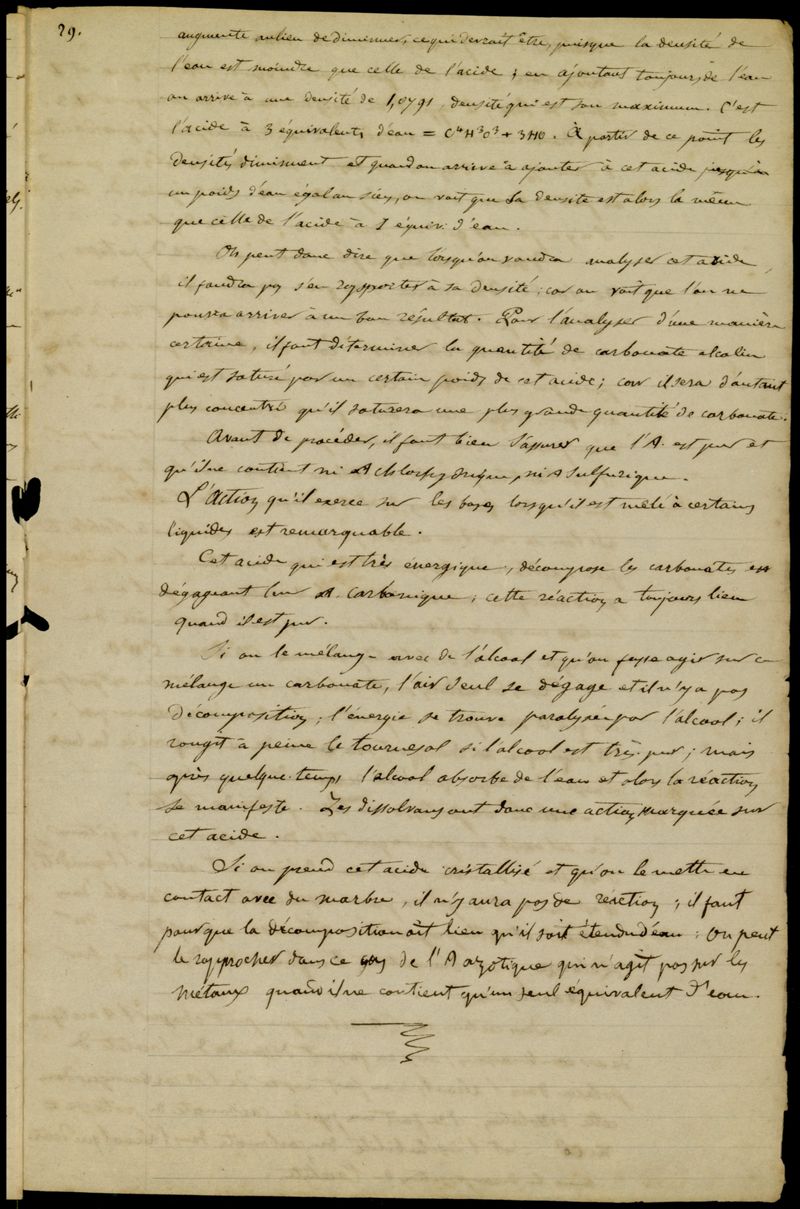 29.
augmente au lieu de diminuer, ce qui devrait être, puisque la densité de
l'eau est moindre que celle de l'acide ; en ajoutant toujours de l'eau
on arrive à une densité de 1,0791, densité qui est son maximum. C'est
l'acide à 3 équivalents d'eau = C⁴H³O³ + 3HO. À partir de ce point les
densités diminuent et quand on arrive à ajouter à cet acide jusqu'à
un poids d'eau égal au sien, on voit que la densité est alors la même
que celle de l'acide à 1 équiv. d'eau.
On peut donc dire que lorsqu'on voudra analyser cet acide,
il faudra pas s'en rapporter à sa densité ; car on voit que l'on ne
pourra arriver à un bon résultat. Pour l'analyser d'une manière
certaine, il faut déterminer la quantité de carbonate alcalin
qui est saturé par un certain poids de cet acide ; car il sera d'autant
plus concentré qu'il saturera une plus grande quantité de carbonate.
Avant de procéder, il faut bien s'assurer que l'A. est pur et
qu'il ne contient ni A Chlorhydrique, ni A Sulfurique.
L'Action qu'il exerce sur les bases lorsqu'il est mêlé à certains
liquides est remarquable.
Cet acide qui est très énergique, décompose les carbonates en
dégageant leur A. Carbonique ; cette réaction a toujours lieu
quand il est pur.
Si on le mélange avec de l'alcool et qu'on fasse agir sur ce
mélange un carbonate, l'air seul se dégage et il n'y a pas
décomposition ; l'énergie se trouve paralysée par l'alcool ; il
rougit à peine le tournesol si l'alcool est très pur ; mais
après quelque temps l'alcool absorbe de l'eau et alors la réaction
se manifeste. Les dissolvans ont donc une action marquée sur
cet acide.
Si on prend cet acide cristallisé et qu'on le mette en
contact avec du marbre, il n'y aura pas de réaction ; il faut
pour que la décomposition ait lieu qu'il soit étendu d'eau ; On peut
le rapprocher dans ce cas de l'A azotique qui n'agit pas sur les
métaux quand il ne contient qu'un seul équivalent d'eau.